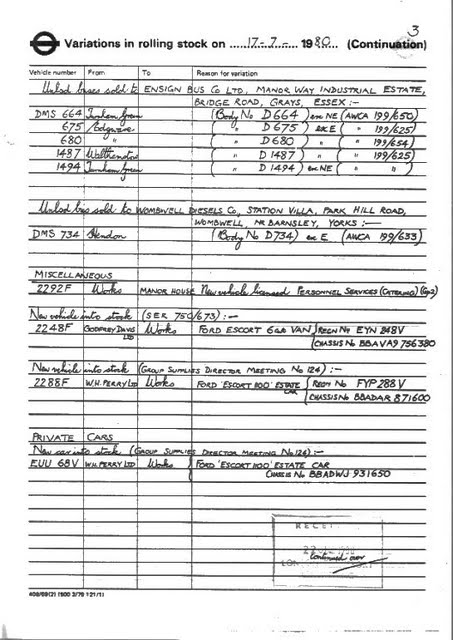 3
Variations in rolling stock on 17-7- 1980 (Continuation)
Vehicle number From To Reason for variation
Unlsd buses sold to ENSIGN BUS CO LTD, MANOR WAY INDUSTRIAL ESTATE,
BRIDGE ROAD, GRAYS, ESSEX :-
DMS 664 Turnham Green (Body No D 664) ex NE (AWCA 199/650)
675 Edgware ( " D 675 ) ex E ( " 199/625)
680 " ( " D 680 ) " ( " 199/654)
1487 Walthamstow ( " D 1487 ) " ( " 199/625)
1494 Turnham Green ( " D 1494 ) ex NE ( " " )
Unlsd bus sold to WOMBWELL DIESELS CO, STATION VILLA, PARK HILL ROAD,
WOMBWELL, NR BARNSLEY, YORKS :-
DMS 734 Hendon (Body No D734) ex E (AWCA 199/633)
MISCELLANEOUS
2292F Works MANOR HOUSE New vehicle licensed PERSONNEL SERVICES (CATERING) (Gp2)
New vehicle into stock (SER 750/673) :-
2248F GODFREY DAVIS LTD Works FORD ESCORT 6cwt VAN (REGN No EYN 848V
(CHASSIS No BBAVA9 756380
New vehicle into stock (GROUP SUPPLIES DIRECTOR MEETING No 124) :-
2288F W.H. PERRY LTD Works FORD 'ESCORT 1100' ESTATE CAR (REGN No FYP 288V
(CHASSIS No BBADAR 871600
PRIVATE CARS
New car into stock (GROUP SUPPLIES DIRECTOR MEETING No 126) :-
EUU 68V W.H. PERRY LTD Works FORD 'ESCORT 1100' ESTATE CAR
CHASSIS No BBADWJ 931650
Continued over
408/69(2) (500 3/79 121/1)